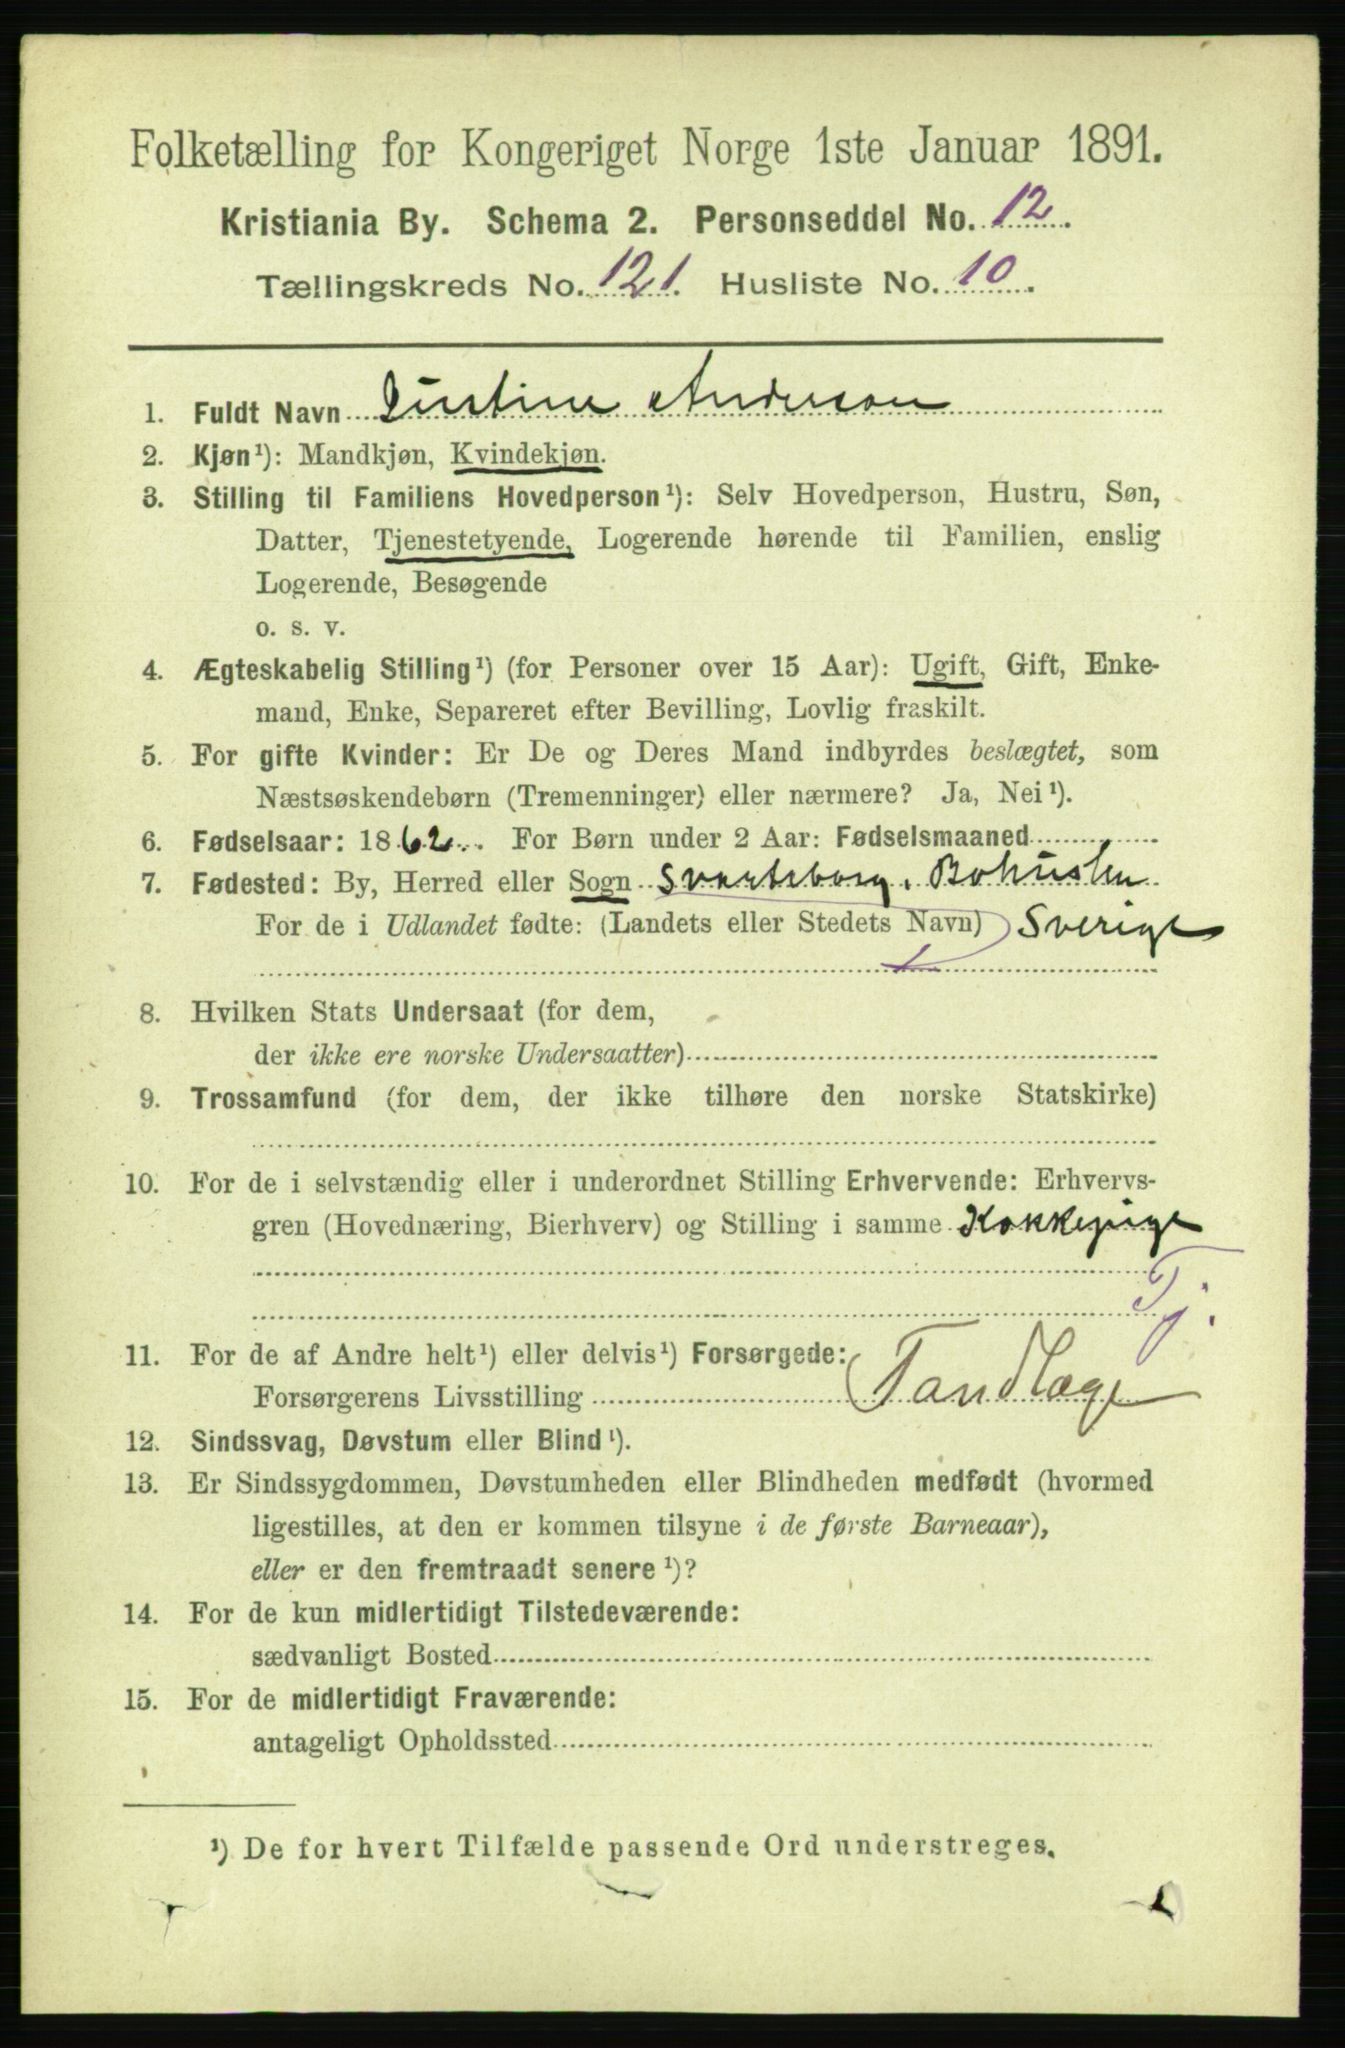 Folketælling for Kongeriget Norge 1ste Januar 1891.
Kristiania By. Schema 2. Personseddel No. 12.
Tællingskreds No. 121. Husliste No. 10.
1. Fuldt Navn Justine Anderson
2. Kjøn¹): Mandkjøn, Kvindekjøn.
3. Stilling til Familiens Hovedperson¹): Selv Hovedperson, Hustru, Søn,
Datter, Tjenestetyende, Logerende hørende til Familien, enslig
Logerende, Besøgende
o. s. v.
4. Ægteskabelig Stilling¹) (for Personer over 15 Aar): Ugift, Gift, Enke-
mand, Enke, Separeret efter Bevilling, Lovlig fraskilt.
5. For gifte Kvinder: Er De og Deres Mand indbyrdes beslægtet, som
Næstsøskendebørn (Tremenninger) eller nærmere? Ja, Nei¹).
6. Fødselsaar: 1862. For Børn under 2 Aar: Fødselsmaaned
7. Fødested: By, Herred eller Sogn Svarteborg, Bohuslen
For de i Udlandet fødte: (Landets eller Stedets Navn) Sverige
8. Hvilken Stats Undersaat (for dem,
der ikke ere norske Undersaatter)
9. Trossamfund (for dem, der ikke tilhøre den norske Statskirke)
10. For de i selvstændig eller i underordnet Stilling Erhvervende: Erhvervs-
gren (Hovednæring, Bierhverv) og Stilling i samme Kokkepige
Tj.
11. For de af Andre helt¹) eller delvis¹) Forsørgede:
Forsørgerens Livsstilling (Tandlæge
12. Sindssvag, Døvstum eller Blind¹).
13. Er Sindssygdommen, Døvstumheden eller Blindheden medfødt (hvormed
ligestilles, at den er kommen tilsyne i de første Barneaar),
eller er den fremtraadt senere¹)?
14. For de kun midlertidigt Tilstedeværende:
sædvanligt Bosted
15. For de midlertidigt Fraværende:
antageligt Opholdssted
¹) De for hvert Tilfælde passende Ord understreges.